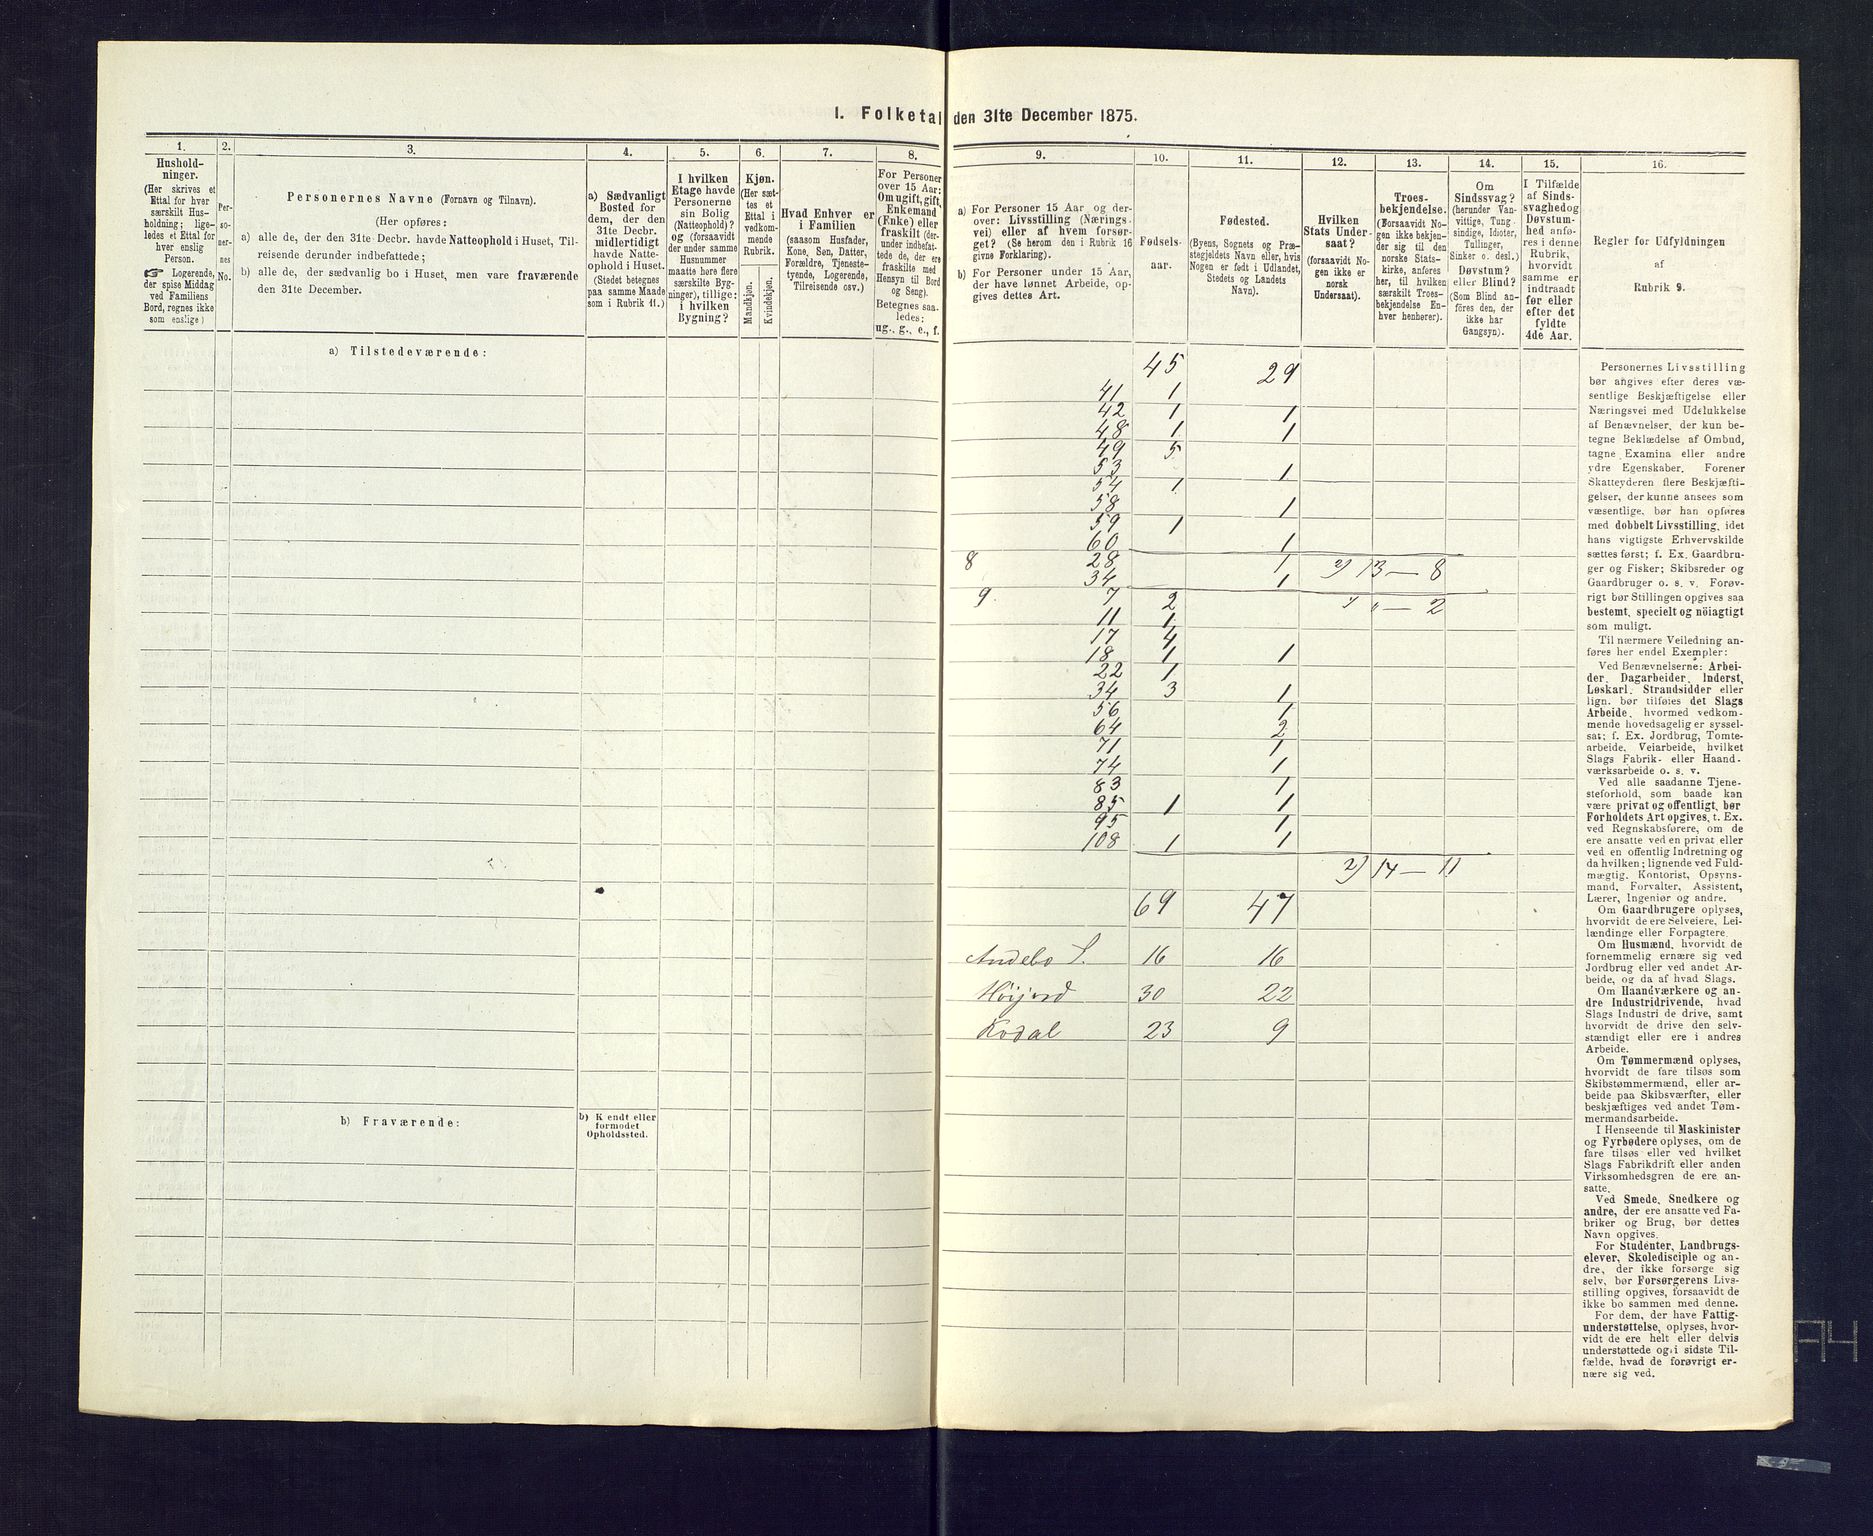 I. Folketal den 31te December 1875.
1.
Hushold-
ninger.
(Her skrives et
Ettal for hver
særskilt Hus-
holdning; lige-
ledes et Ettal for
hver enslig
Person.
☞ Logerende,
der spise Middag
ved Familiens
Bord, regnes ikke
som enslige)
2.
Per-
so-
ner-
nes
No.
3.
Personernes Navne (Fornavn og Tilnavn).
(Her opføres:
a) alle de, der den 31te Decbr. havde Natteophold i Huset, Til-
reisende derunder indbefattede;
b) alle de, der sædvanlig bo i Huset, men vare fraværende
den 31te December.
4.
a) Sædvanligt
Bosted for
dem, der den
31te Decbr.
midlertidigt
havde Natte-
ophold i Huset.
(Stedet betegnes
paa samme Maade
som i Rubrik 11.)
5.
I hvilken
Etage havde
Personerne
sin Bolig
(Natteophold)?
og (forsaavidt
der under samme
Husnummer
maatte høre flere
særskilte Byg-
ninger), tillige:
i hvilken
Bygning?
6.
Kjøn.
(Her sæt-
tes et
Ettal i
vedkom-
mende
Rubrik.
Mandkjøn.
Kvindekjøn.
7.
Hvad Enhver er
i Familien
(saasom Husfader,
Kone, Søn, Datter,
Forældre, Tjeneste-
tyende, Logerende,
Tilreisende osv.)
8.
For Personer
over 15 Aar:
Om ugift, gift,
Enkemand
(Enke) eller
fraskilt (der-
under indbefat-
tede de, der ere
fraskilte med
Hensyn til Bord
og Seng).
Betegnes saa-
ledes:
ug., g., e., f.
9.
a) For Personer 15 Aar og der-
over: Livsstilling (Nærings-
vei) eller af hvem forsør-
get? (Se herom den i Rubrik 16
givne Forklaring).
b) For Personer under 15 Aar,
der have lønnet Arbeide, op-
gives dettes Art.
10.
Fødsels-
aar.
11.
Fødested.
(Byens, Sognets og Præ-
stegjeldets Navn eller, hvis
Nogen er født i Udlandet,
Stedets og Landets
Navn).
12.
Hvilken
Stats Under-
saat?
(forsaavidt No-
gen ikke er
norsk
Undersaat).
13.
Troes-
bekjendelse.
(Forsaavidt No-
gen ikke bekjen-
der sig til den
norske Stats-
kirke, anføres
her, til hvilken
særskilt Troes-
bekjendelse En-
hver henhører).
14.
Om
Sindssvag?
(herunder Van-
vittige, Tung-
sindige, Idioter,
Tullinger,
Sinker o. desl.)
Døvstum?
eller Blind?
(Som Blind an-
føres den, der
ikke har
Gangsyn).
15.
I Tilfælde
af Sinds-
svaghed og
Døvstum-
hed anfø-
res i denne
Rubrik,
hvorvidt
samme er
indtraadt
før eller
efter det
fyldte
4de Aar.
16.
Regler for Udfyldningen
af
Rubrik 9.
a) Tilstedeværende:
45 29
41 1
42 1 1
48 1 1
49 5
53 1
54 1
58 1
59 1
60 1
8 28 1 2) 13 — 8
34 1
9. 7 2 " — 2
11 1
17 4
18 1 1
22 1
34 3 1
56 1
64 2
71 1
74 1
83 1
85 1 1
95 1
108 1 1
2) 14 — 11
69 47
Andebo S. 16 16
Høijord 30 22
Kodal 23 9
b) Fraværende:
b) Kjendt eller
formodet
Opholdssted.
Personernes Livsstilling
bør angives efter deres væ-
sentlige Beskjæftigelse eller
Næringsvei med Udelukkelse
af Benævnelser, der kun be-
tegne Beklædelse af Ombud,
tagne Examina eller andre
ydre Egenskaber. Forener
Skatteyderen flere Beskjæfti-
gelser, der kunne ansees som
væsentlige, bør han opføres
med dobbelt Livsstilling, idet
hans vigtigste Erhvervskilde
sættes først; f. Ex. Gaardbru-
ger og Fisker; Skibsreder og
Gaardbruger o. s. v. Forøv-
rigt bør Stillingen opgives saa
bestemt, specielt og nøiagtigt
som muligt.
Til nærmere Veiledning an-
føres her endel Exempler:
Ved Benævnelserne: Arbei-
der, Dagarbeider, Inderst,
Løskarl, Strandsidder eller
lign. bør tilføies det Slags
Arbeide, hvormed vedkom-
mende hovedsagelig er syssel-
sat; f. Ex. Jordbrug, Tomte-
arbeide, Veiarbeide, hvilket
Slags Fabrik- eller Haand-
værksarbeide o. s. v.
Ved alle saadanne Tjene-
steforhold, som baade kan
være privat og offentligt, bør
Forholdets Art opgives, t. Ex.
ved Regnskabsførere, om de
ere ansatte ved en privat eller
ved en offentlig Indretning og
da hvilken; lignende ved Fuld-
mægtig, Kontorist, Opsyns-
mand, Forvalter, Assistent,
Lærer, Ingeniør og andre.
Om Gaardbrugere oplyses,
hvorvidt de ere Selveiere, Lei-
lændinge eller Forpagtere.
Om Husmænd, hvorvidt de
fornemmelig ernære sig ved
Jordbrug eller ved andet Ar-
beide, og da af hvad Slags.
Om Haandværkere og an-
dre Industridrivende, hvad
Slags Industri de drive, samt
hvorvidt de drive den selv-
stændigt eller ere i andres
Arbeide.
Om Tømmermænd oplyses,
hvorvidt de fare tilsøs som
Skibstømmermænd, eller ar-
beide paa Skibsværfter, eller
beskjæftiges ved andet Tøm-
mermandsarbeide.
I Henseende til Maskinister
og Fyrbødere oplyses, om de
fare tilsøs eller ved hvilket
Slags Fabrikdrift eller anden
Virksomhedsgren de ere an-
satte.
Ved Smede, Snedkere og
andre, der ere ansatte ved Fa-
briker og Brug, bør dettes
Navn opgives.
For Studenter, Landbrugs-
elever, Skoledisciple og an-
dre, der ikke forsørge sig
selv, bør Forsørgerens Livs-
stilling opgives, forsaavidt de
ikke bo sammen med denne.
For dem, der have Fattig-
understøttelse, oplyses, hvor-
vidt de ere helt eller delvis
understøttede og i sidste Til-
fælde, hvad de forøvrigt er-
nære sig ved.